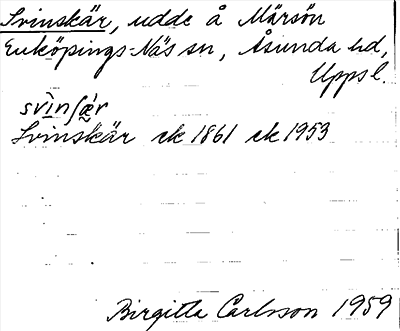 Svinskär, udde å Märsön
Enköpings-Näs sn, Åsunda hd,
Uppsl.
svìnʃæ̀r
Svinskär ek 1861 ek 1953
Birgitta Carlsson 1959